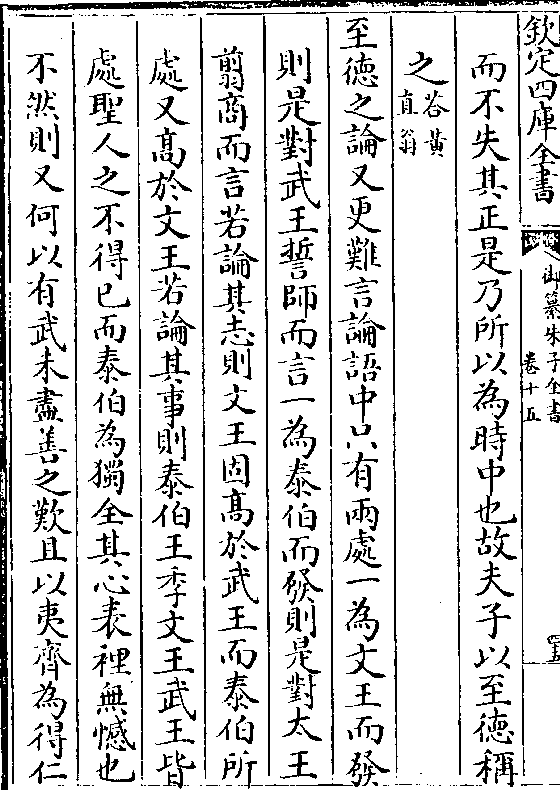 欽定四庫全書
御纂朱子全書
卷十五
而不失其正是乃所以為時中也故夫子以至德稱
之答黃
直翁
至德之論又更難言論語中只有兩處一為文王而發
則是對武王誓師而言一為泰伯而發則是對太王
翦商而言若論其志則文王固高於武王而泰伯所
處又高於文王若論其事則泰伯王季文王武王皆
處聖人之不得已而泰伯為獨全其心表裡無憾也
不然則又何以有武未盡善之歎且以夷齊為得仁